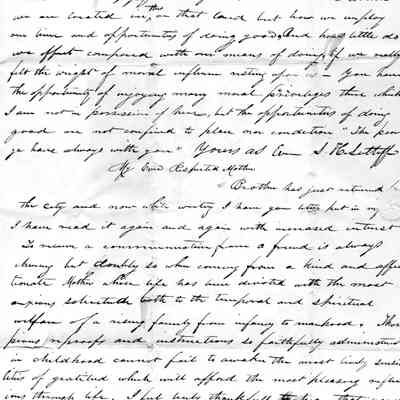 we are created in this or that land but how we employ
our time and opportunities of doing good. And how little do
we effect compared with our means of doing if we really
felt the weight of moral influence resting upon us - You have
the opportunity of enjoying many moral priviliges there which
I am not in possession of here, but the opportunities of doing
good are not confined to place nor condition "The poor
ye have always with you" Yours as Ever S. H.
My Ever Respected Mother
Brother has just returned
the city and now while writing I have your letter put in my
I have read it again and again with increased interest
To receive a communication from a friend is always
cheering but doubly so when coming from a kind and affec
tionate Mother whose life has been devoted with the most
anxious solicitude both to the temporal and spiritual
welfare of a rising family from infancy to manhood. Those
pious reproofs and instructions so faithfully administered
in childhood cannot fail to awaken the most lively sensi
bilities of gratitude which will afford the most pleasing reflec
ions through life. I feel truly thankful